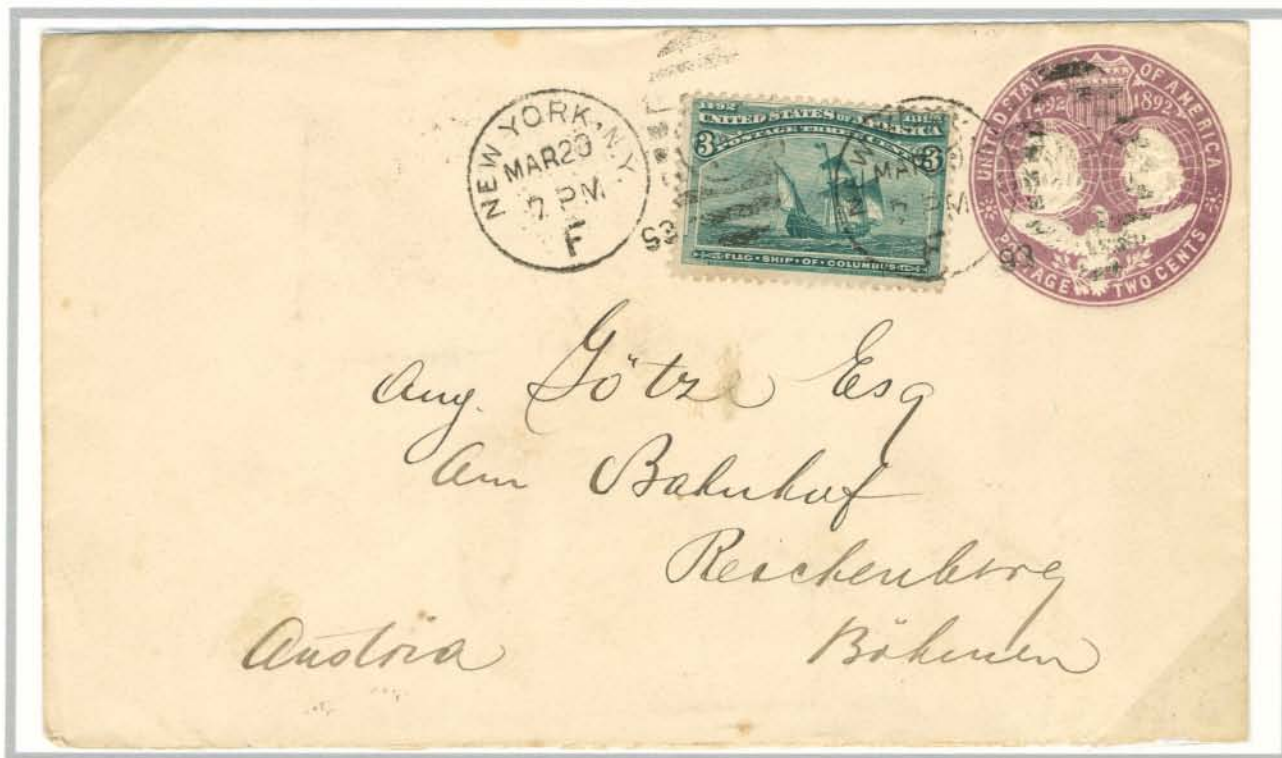 NEW YORK, N.Y.
MAR 20
7 PM
F
93
1492 1892
UNITED STATES OF AMERICA
POSTAGE THREE CENTS
3 3
FLAG·SHIP·OF·COLUMBUS
MAR
93
UNITED STATES OF AMERICA
1492 1892
POSTAGE TWO CENTS
Aug. Götze Esq
Am Bahnhof
Reichenberg
Austria Böhmen